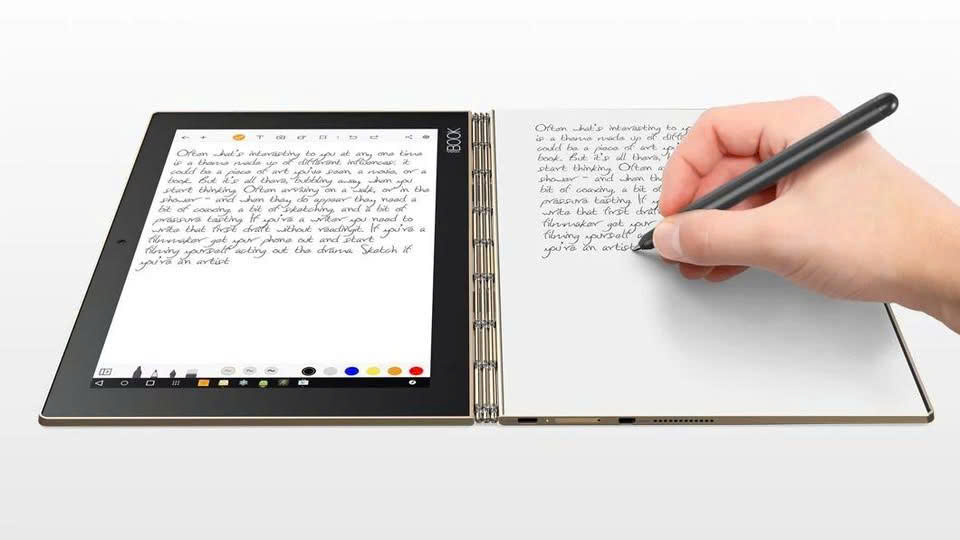 Often what's interesting to you at any one time
is a theme made up of different influences: it
could be a piece of art you've seen, a movie, or a
book. But it's all there, bubbling away when you
start thinking. Often arriving on a walk, or in the
shower - and when they do appear they need a
bit of coaxing, a bit of sketching, and a bit of
pressure tasting. If you're a writer you need to
write that first draft without readingit. If you're a
filmmaker get your phone out and start
filming yourself acting out the drama. Sketch if
you're an artist
BOOK
Often what's interesting to
is a theme made up of
could be a piece of art
book. But it's all there,
start thinking. Often
shower - and when
bit of coaxing, a
pressure tasting. If
write that first
filmmaker get your
filming yourself
you're an artist